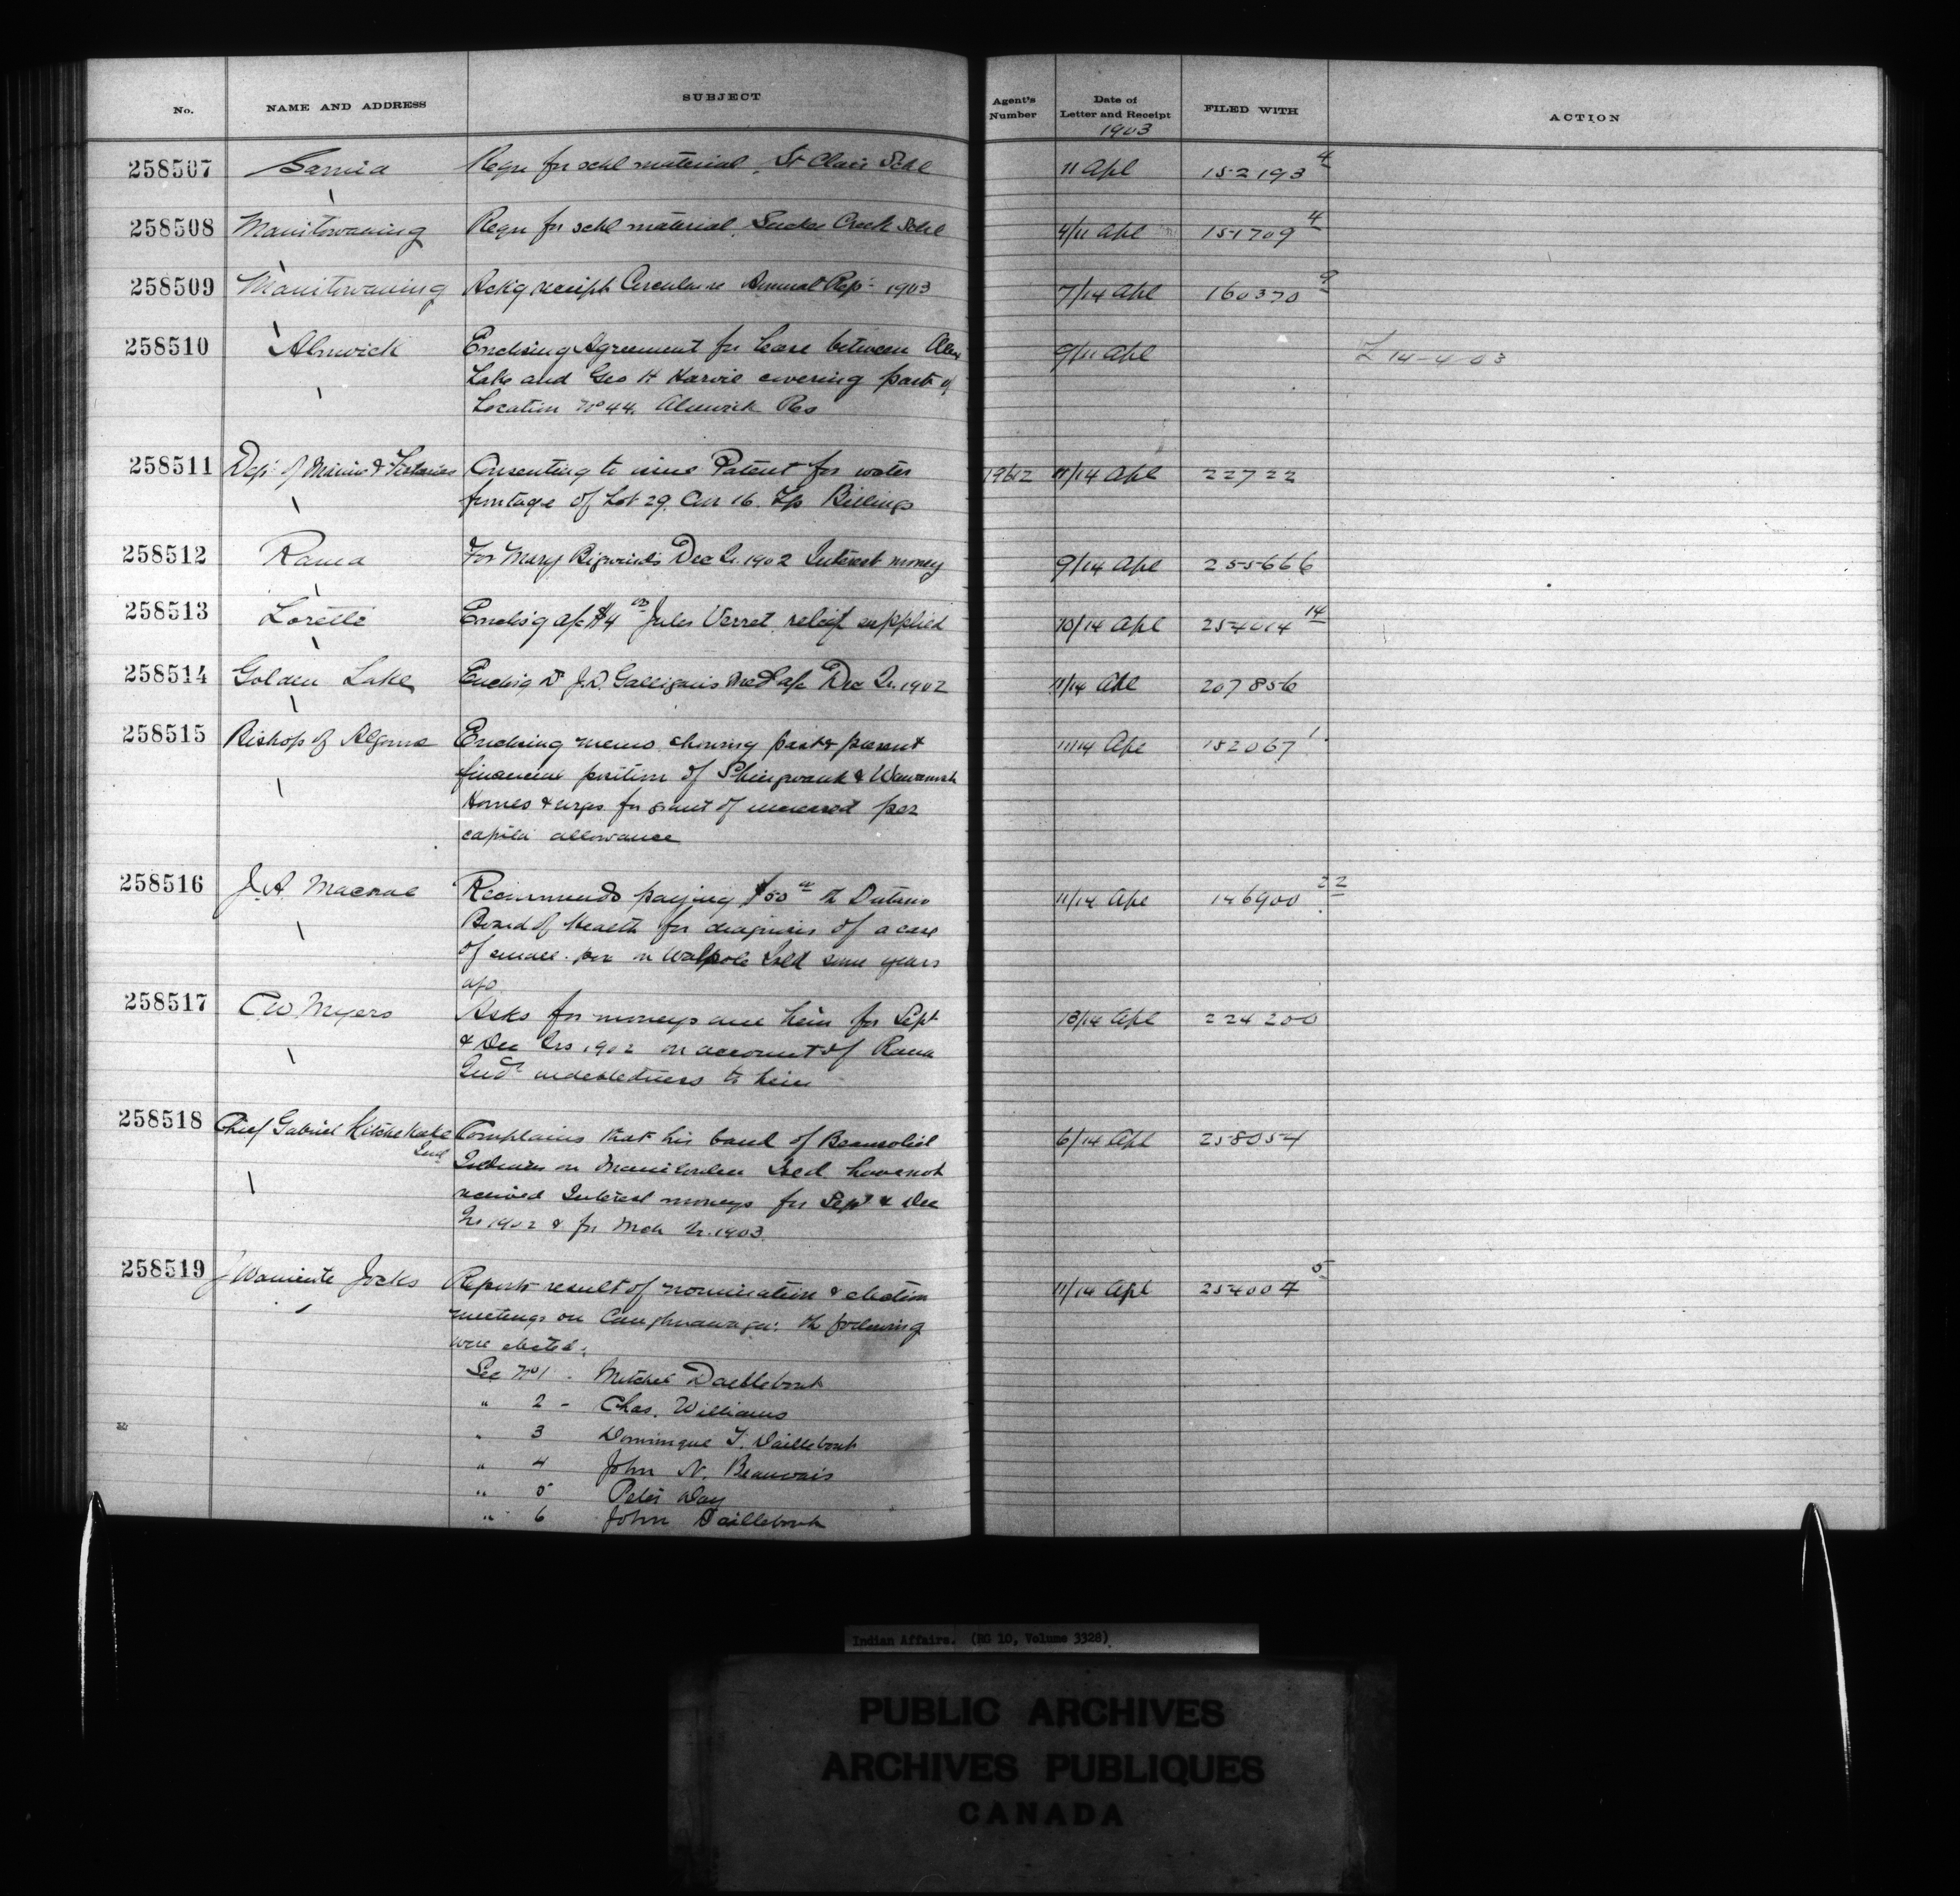 No. NAME AND ADDRESS SUBJECT Agent's Number Date of Letter and Receipt FILED WITH ACTION
1903
258507 Sarnia Requ for schl material, St Clair Schl 11 Apl 152193 4
258508 Manitowaning Requ for schl material, Sucker Creek Schl 4/11 Apl 151709 4
258509 Manitowaning Ackg receipt Circular re Annual Rep. 1903 7/14 Apl 160370 9
258510 Alnwick Enclosing Agreement for lease between Allen 9/11 Apl L 14-4-03
Lake and Geo H Harvie covering part of
Location No 44, Alnwick Res
258511 Dept of Marine & Fisheries Consenting to issue Patent for water 19612 11/14 Apl 22722
frontage of Lot 29, Con 16. Tp Billings
258512 Rama For Mary Bigwind's Dec Qr. 1902 Interest money 9/14 Apl 255666
258513 Lorette Enclos'g a/c $4 00 Jules Verret relief supplied 10/14 Apl 254014 14
258514 Golden Lake Enclos'g Dr J.D. Galligan's Med a/c Dec Qr. 1902 11/14 Apl 207856
258515 Bishop of Algoma Enclosing memo. showing past & present 11/14 Apl 152067 1
financial position of Shingwauk & Wawanosh
Homes & urges for grant of increased per
capita allowance
258516 J. A. Macrae Recommends paying $50 00 to Ontario 11/14 Apl 146900 22
Board of Health for diagnosis of a case
of small-pox on Walpole Isld some years
ago
258517 C W Myers Asks for moneys due him for Sept 13/14 Apl 224200
& Dec Qrs 1902 on account of Rama
Inds indebtedness to him
258518 Chief Gabriel Complains that his band of Beausoliel 6/14 Apl 258054
Ind
Indians on Manitoulin Isld have not
received Interest moneys for Sept & Dec
Qr 1902 & for Mch Qr. 1903.
258519 Jocks Reports result of nomination & election 11/14 Apl 254004 5
meetings on Caughnawaga: the following
were elected:
Sec No 1 - Mitchel Daillebout
" 2 - Chas. Williams
" 3 Dominique T. Daillebout
" 4 John N. Beauvais
" 5 Peter Day
" 6 John Daillebout
Indian Affairs. (RG 10, Volume 3328)
PUBLIC ARCHIVES
ARCHIVES PUBLIQUES
CANADA